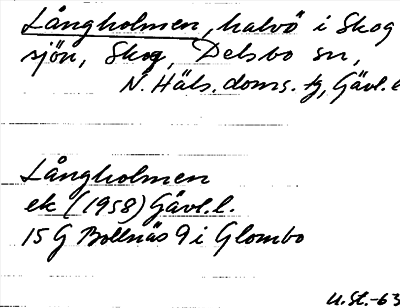 Långholmen, halvö i Skog
sjön, Skog, Delsbo sn,
N. Häls. doms. tg, Gävl. l
Långholmen
ek (1958) Gävl. l.
15 G Bollnäs 9 i Glombo
U.St.-63